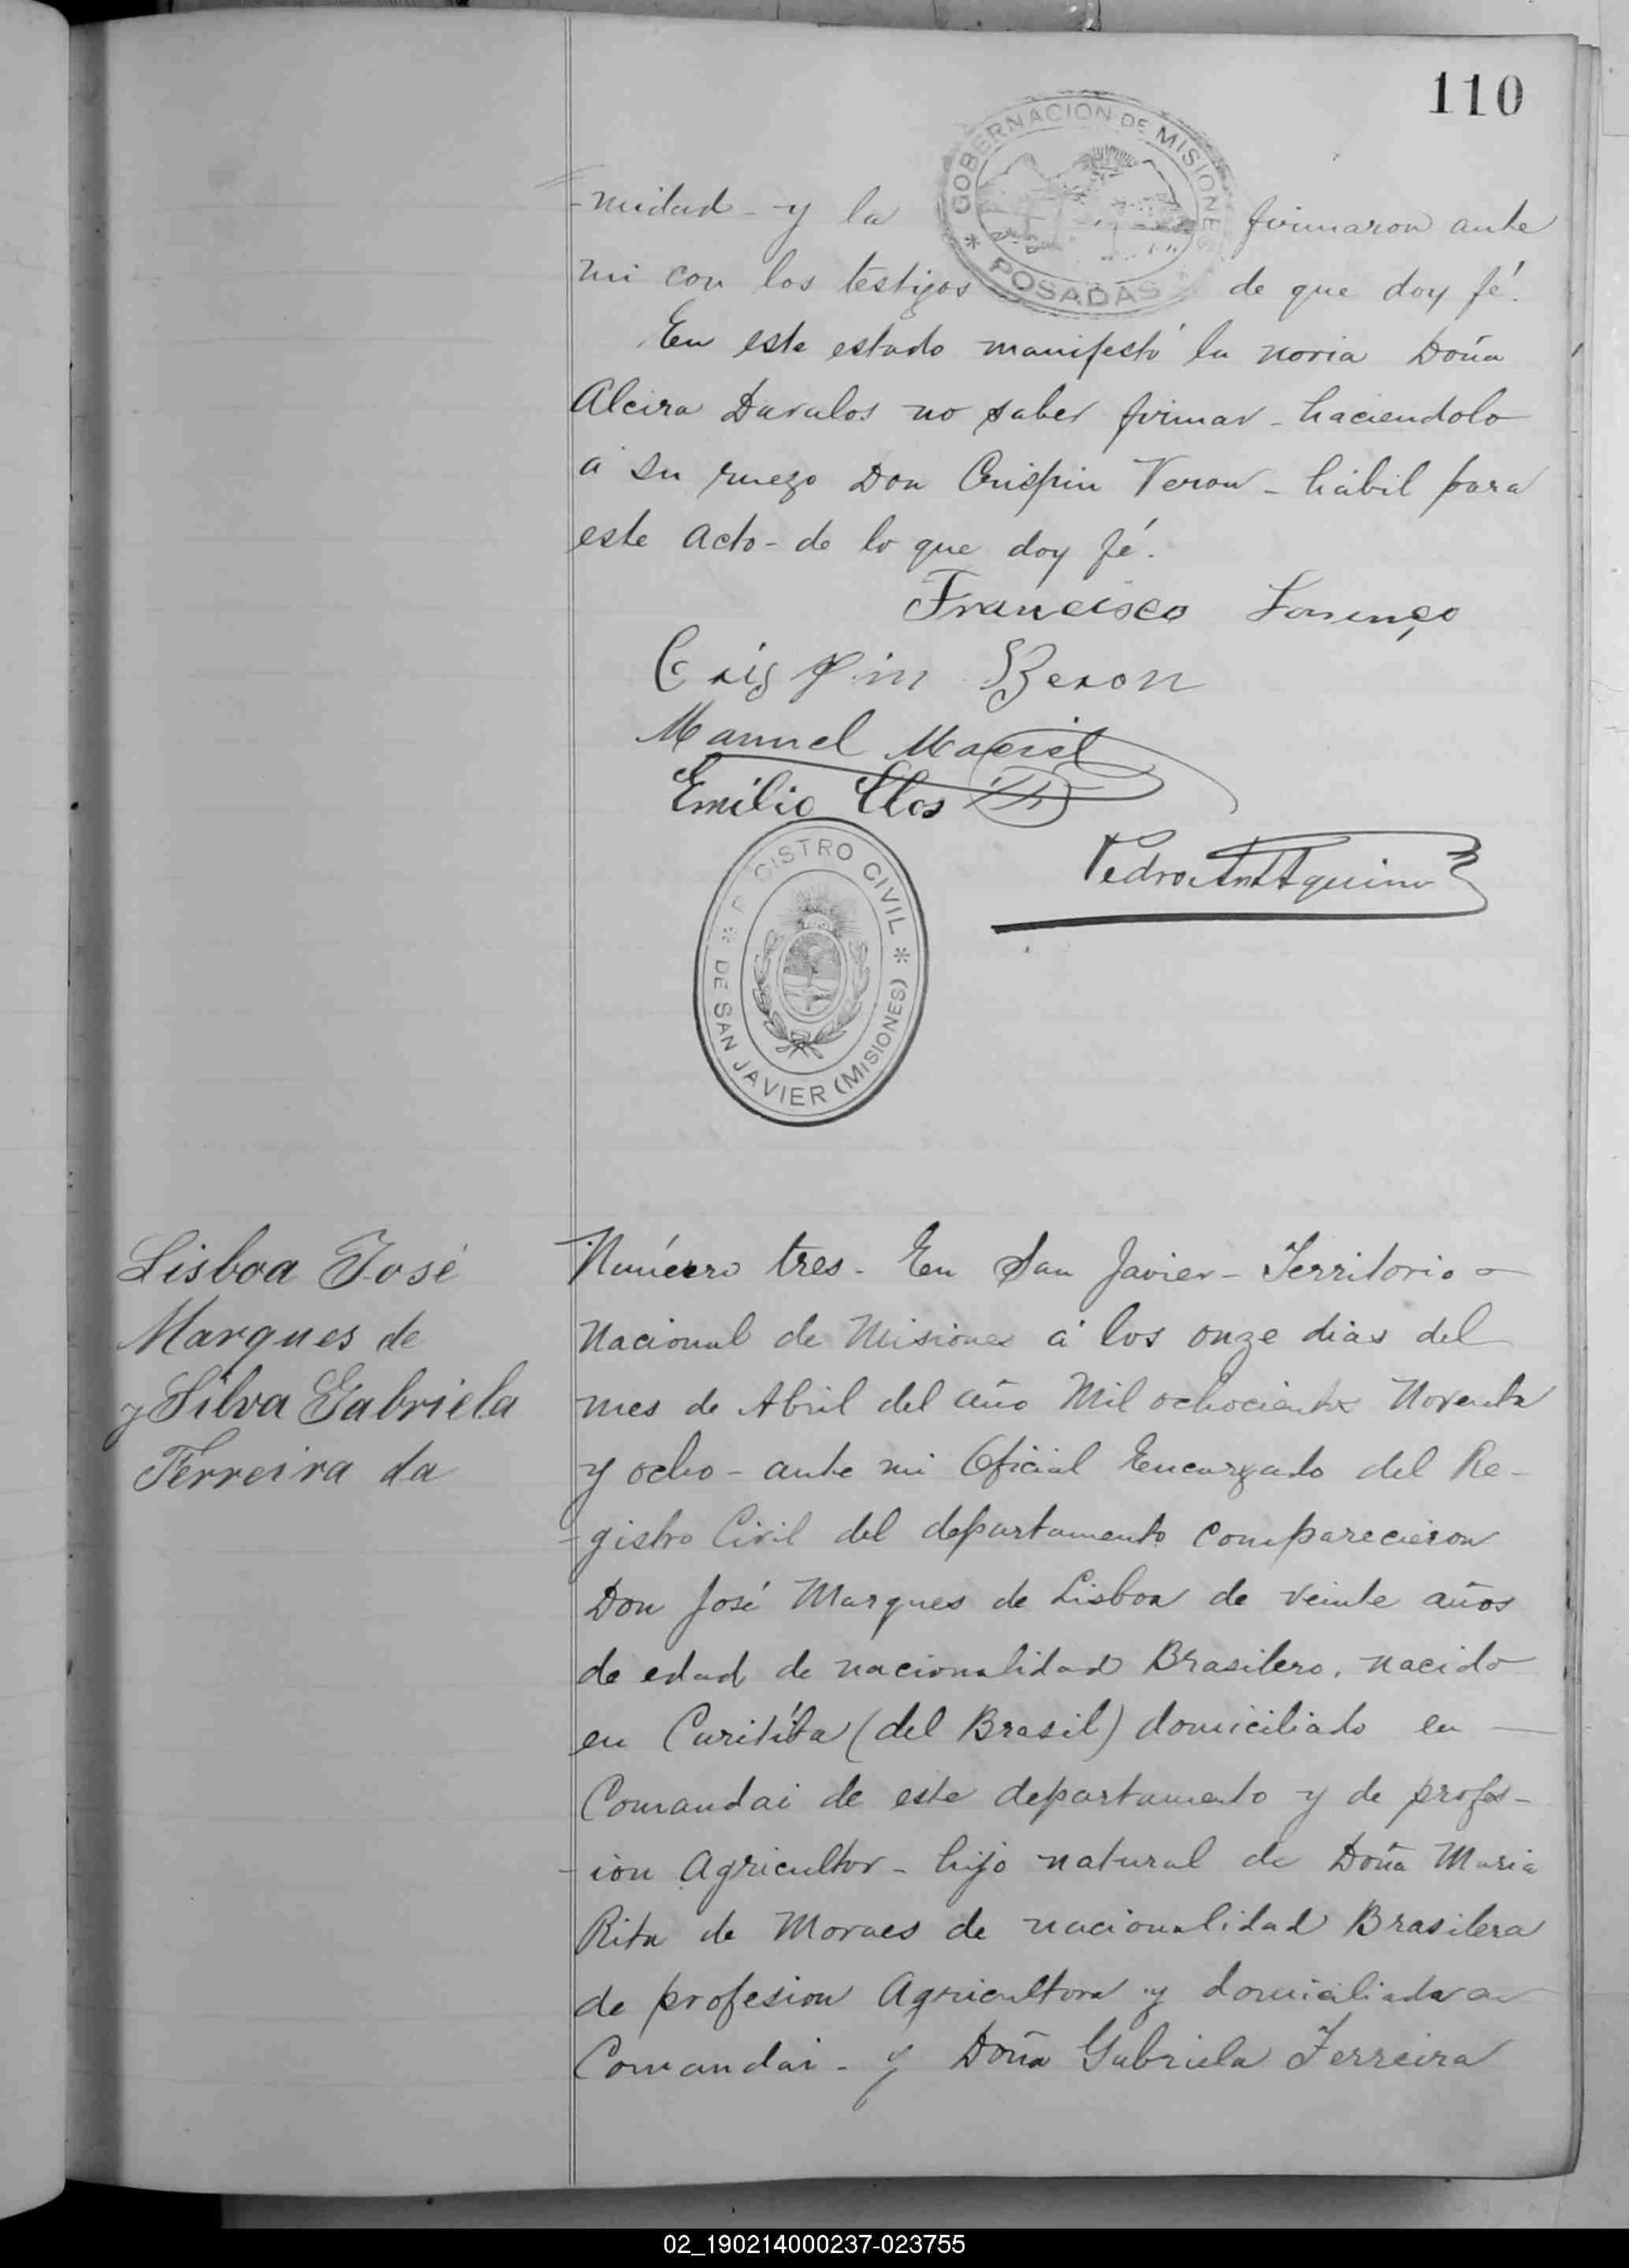 110
GOBERNACION DE MISIONES
* POSADAS *
-midad - y la firmaron ante
mi con los testigos de que doy fé.
En este estado manifestó la novia Doña
Alcira Davalos no saber firmar - haciendolo
á su ruego Don Crispin Veron - hábil para
este acto - de lo que doy fé.
Francisco
Crispin Beron
Manuel Maciel
Emilio Clos
Pedro Ant Aquino
REGISTRO CIVIL
* DE SAN JAVIER (MISIONES) *
Lisboa José
Marques de
y Silva Gabriela
Ferreira da
Número tres - En San Javier - Territorio -
Nacional de Misiones á los onze dias del
mes de Abril del año Mil ochocientos Noventa
y ocho - ante mi Oficial Encargado del Re-
-gistro Civil del departamento comparecieron
Don José Marques de Lisboa de veinte años
de edad de nacionalidad Brasilero, nacido
en Curitiba (del Brasil) domiciliado en —
Comandai de este departamento y de profes-
-ion Agricultor - hijo natural de Doña Maria
Rita de Moraes de nacionalidad Brasilera
de profesion Agricultora y domiciliada en
Comandai - y Doña Gabriela Ferreira
02_190214000237-023755